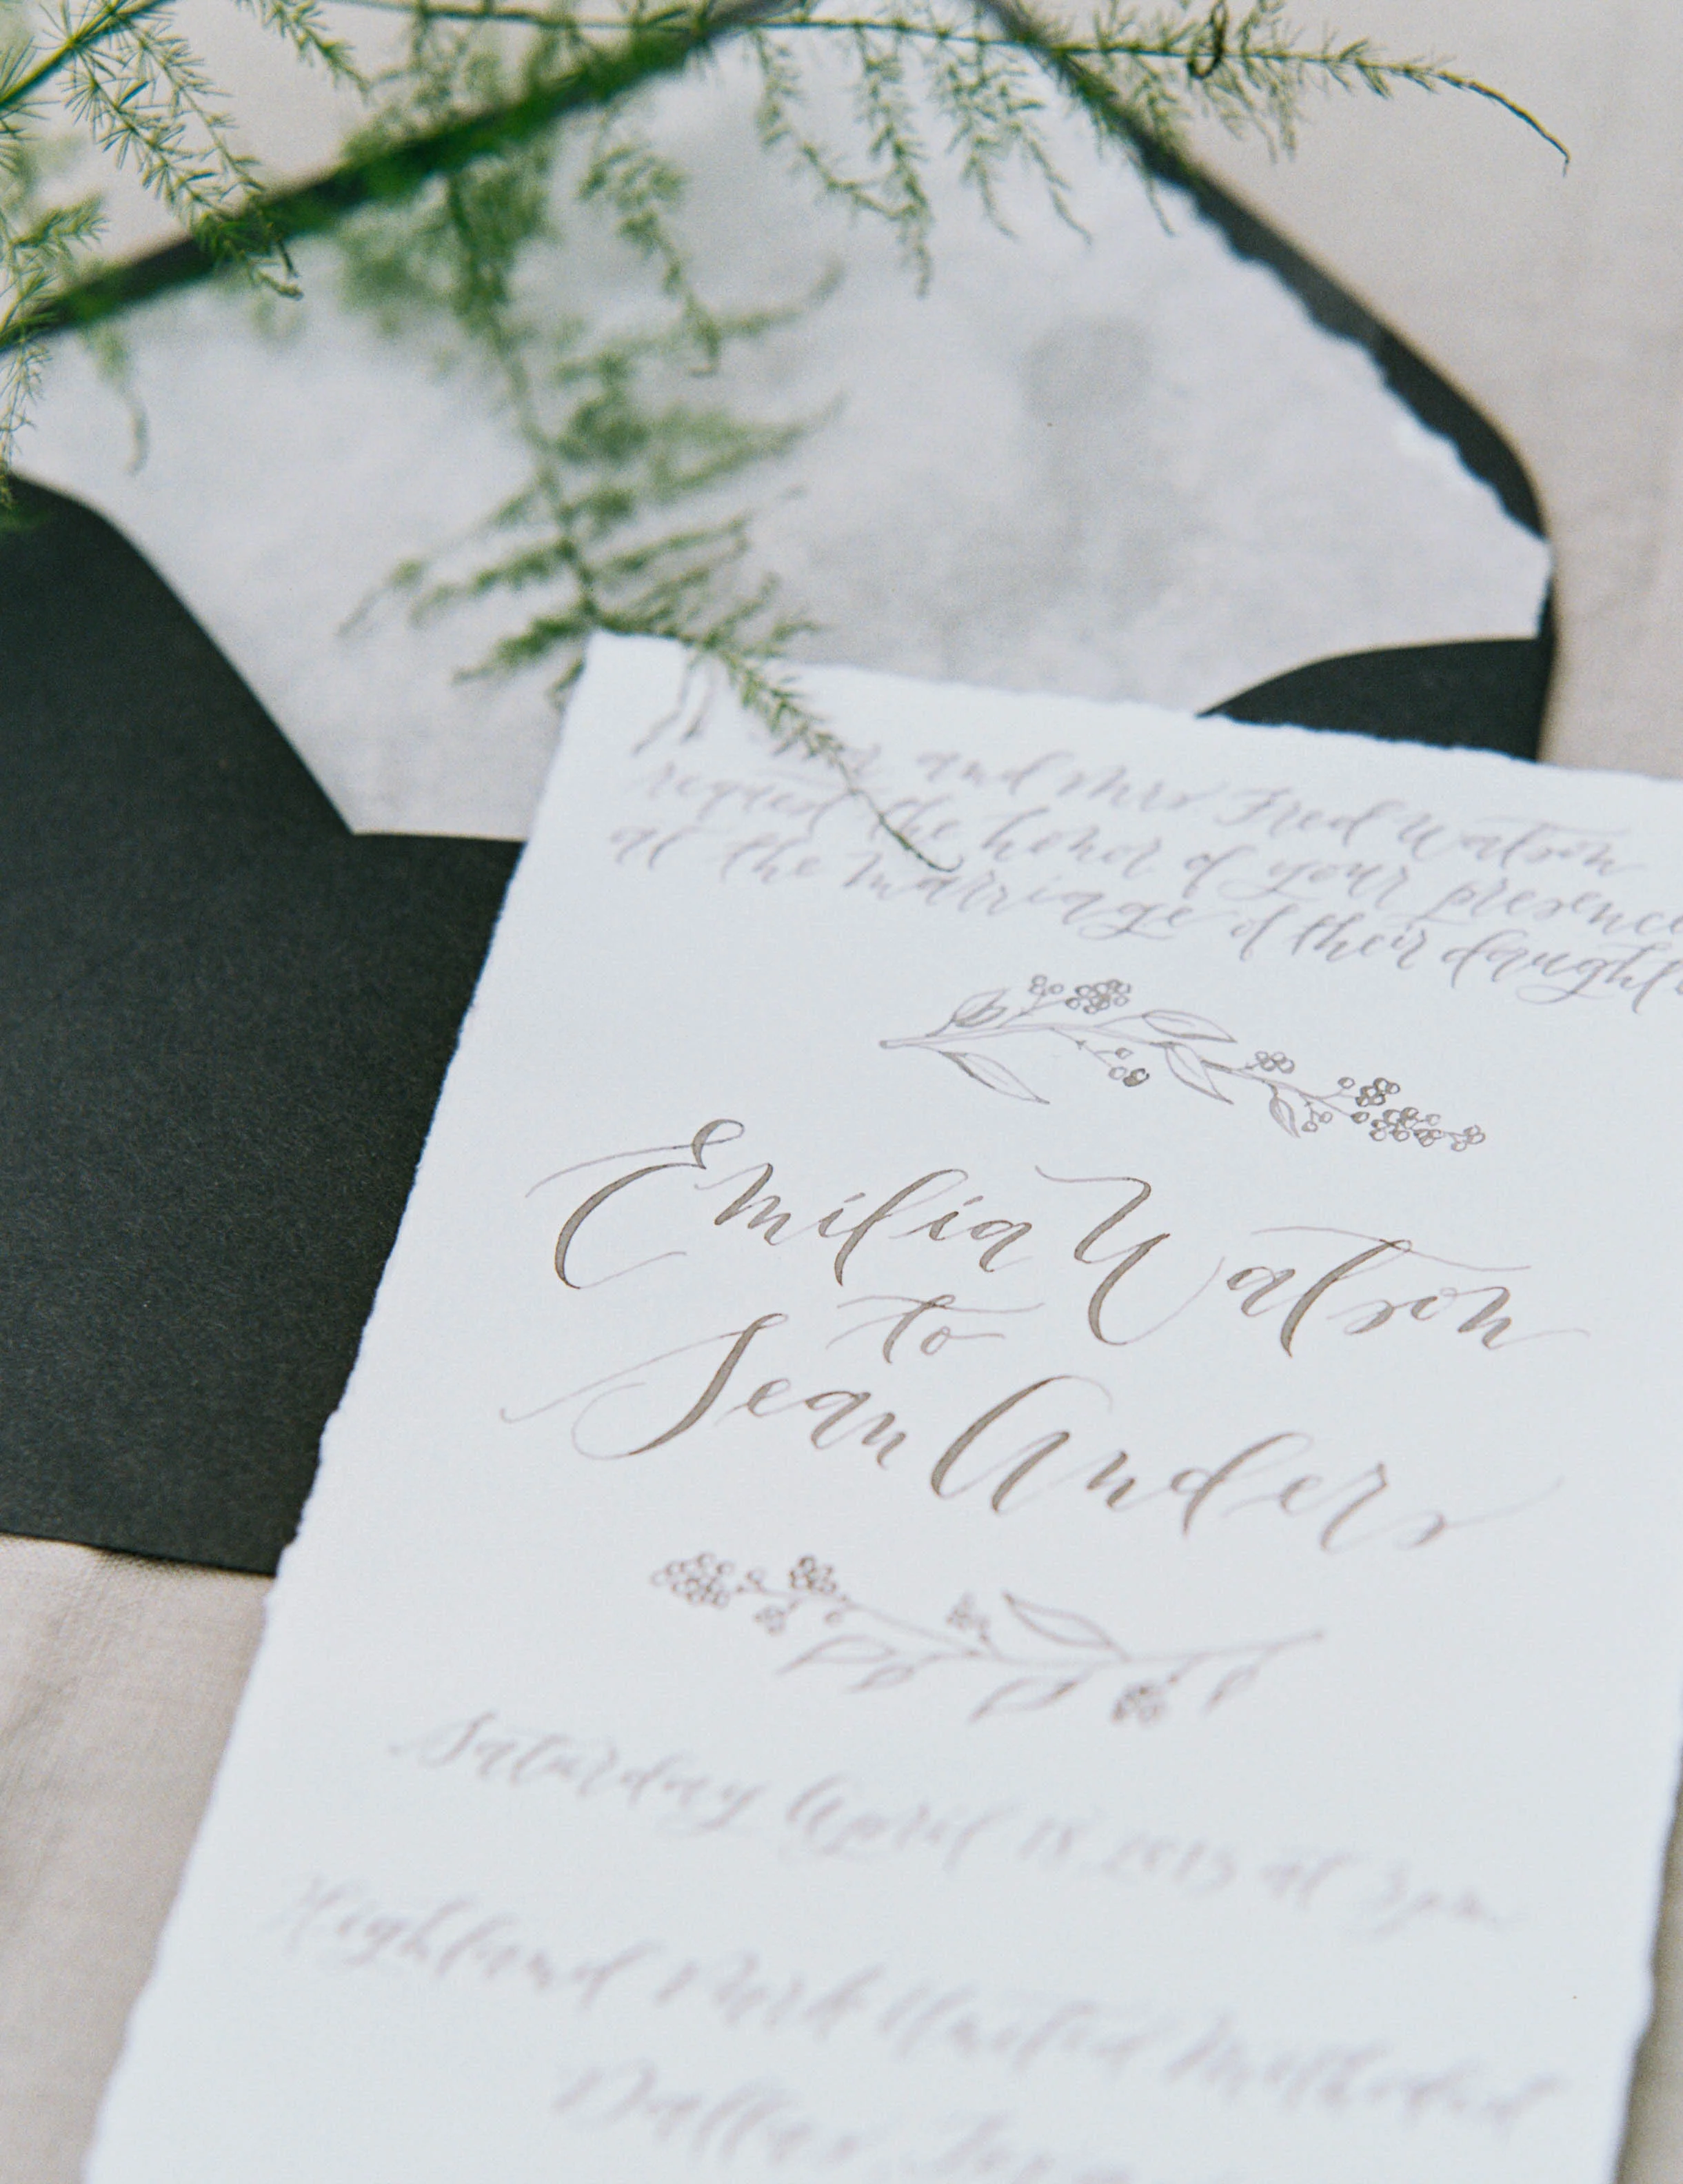 and Mrs Fred Watson
request the honor of your presence
at the marriage of their daught
Emilia Watson
to
Sean Anders
Saturday April 18, 2015 at 3 pm
Highland Park United Methodist
Dallas, Texas